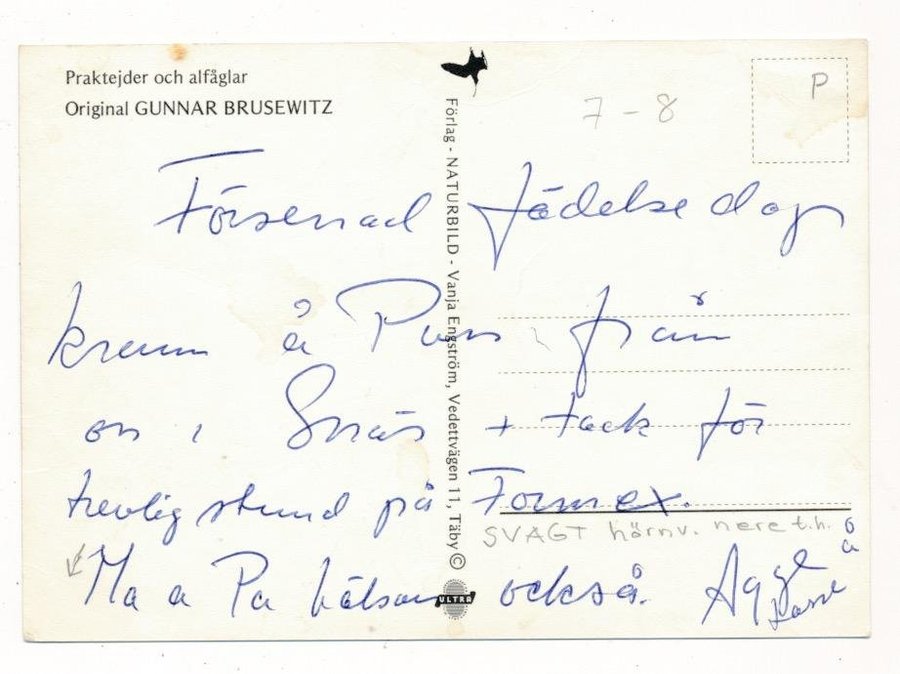 Praktejder och alfåglar
Original GUNNAR BRUSEWITZ
Förlag - NATURBILD - Vanja Engström, Vedettvägen 11, Täby ©
ULTRA
P
7-8
Försenad födelsedags
kram å Puss från
oss i Snäs + tack för
trevlig stund på Formex.
SVAGT hörnv. nere t.h.
Ma a Pa hälsar också.
Agge å
Lasse